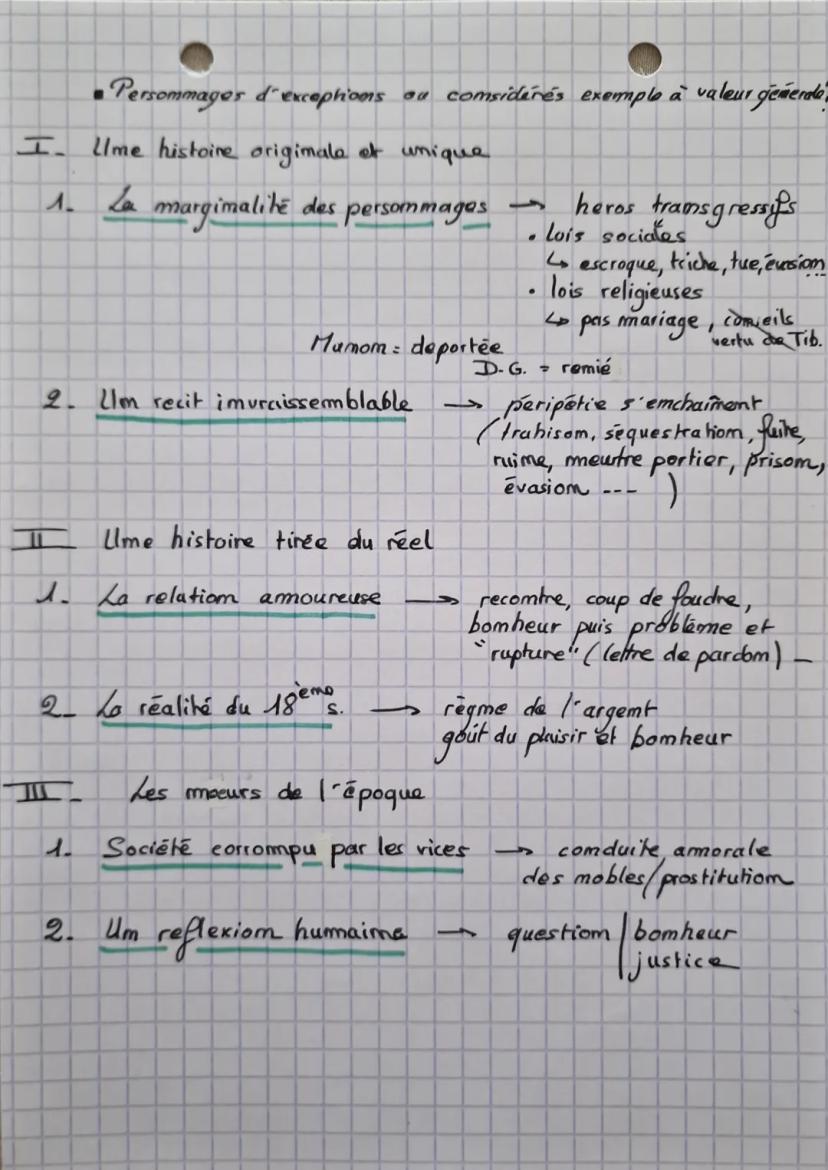 ▪ Personnages d'exceptions ou considérés exemple à valeur générale?
I- Une histoire originale et unique
1. La marginalité des personnages → heros transgressifs
• lois sociales
↳ escroque, triche, tue, évasion...
• lois religieuses
↳ pas mariage, conseils
vertu de Tib.
Manon = deportée
D.G. = renié
2. Un recit invraissemblable → péripétie s'enchaînent
(trahison, séquestration, fuite,
ruine, meurtre portier, prison,
évasion --- )
II Une histoire tirée du réel
1. La relation amoureuse → recontre, coup de foudre,
bonheur puis problème et
"rupture" (lettre de pardon) -
2- La réalité du 18ème s. → règne de l'argent
goût du plaisir et bonheur
III- Les moeurs de l'époque
1. Société corrompu par les vices → conduite amorale
des nobles/prostitution
2. Un reflexion humaine → question | bonheur
justice